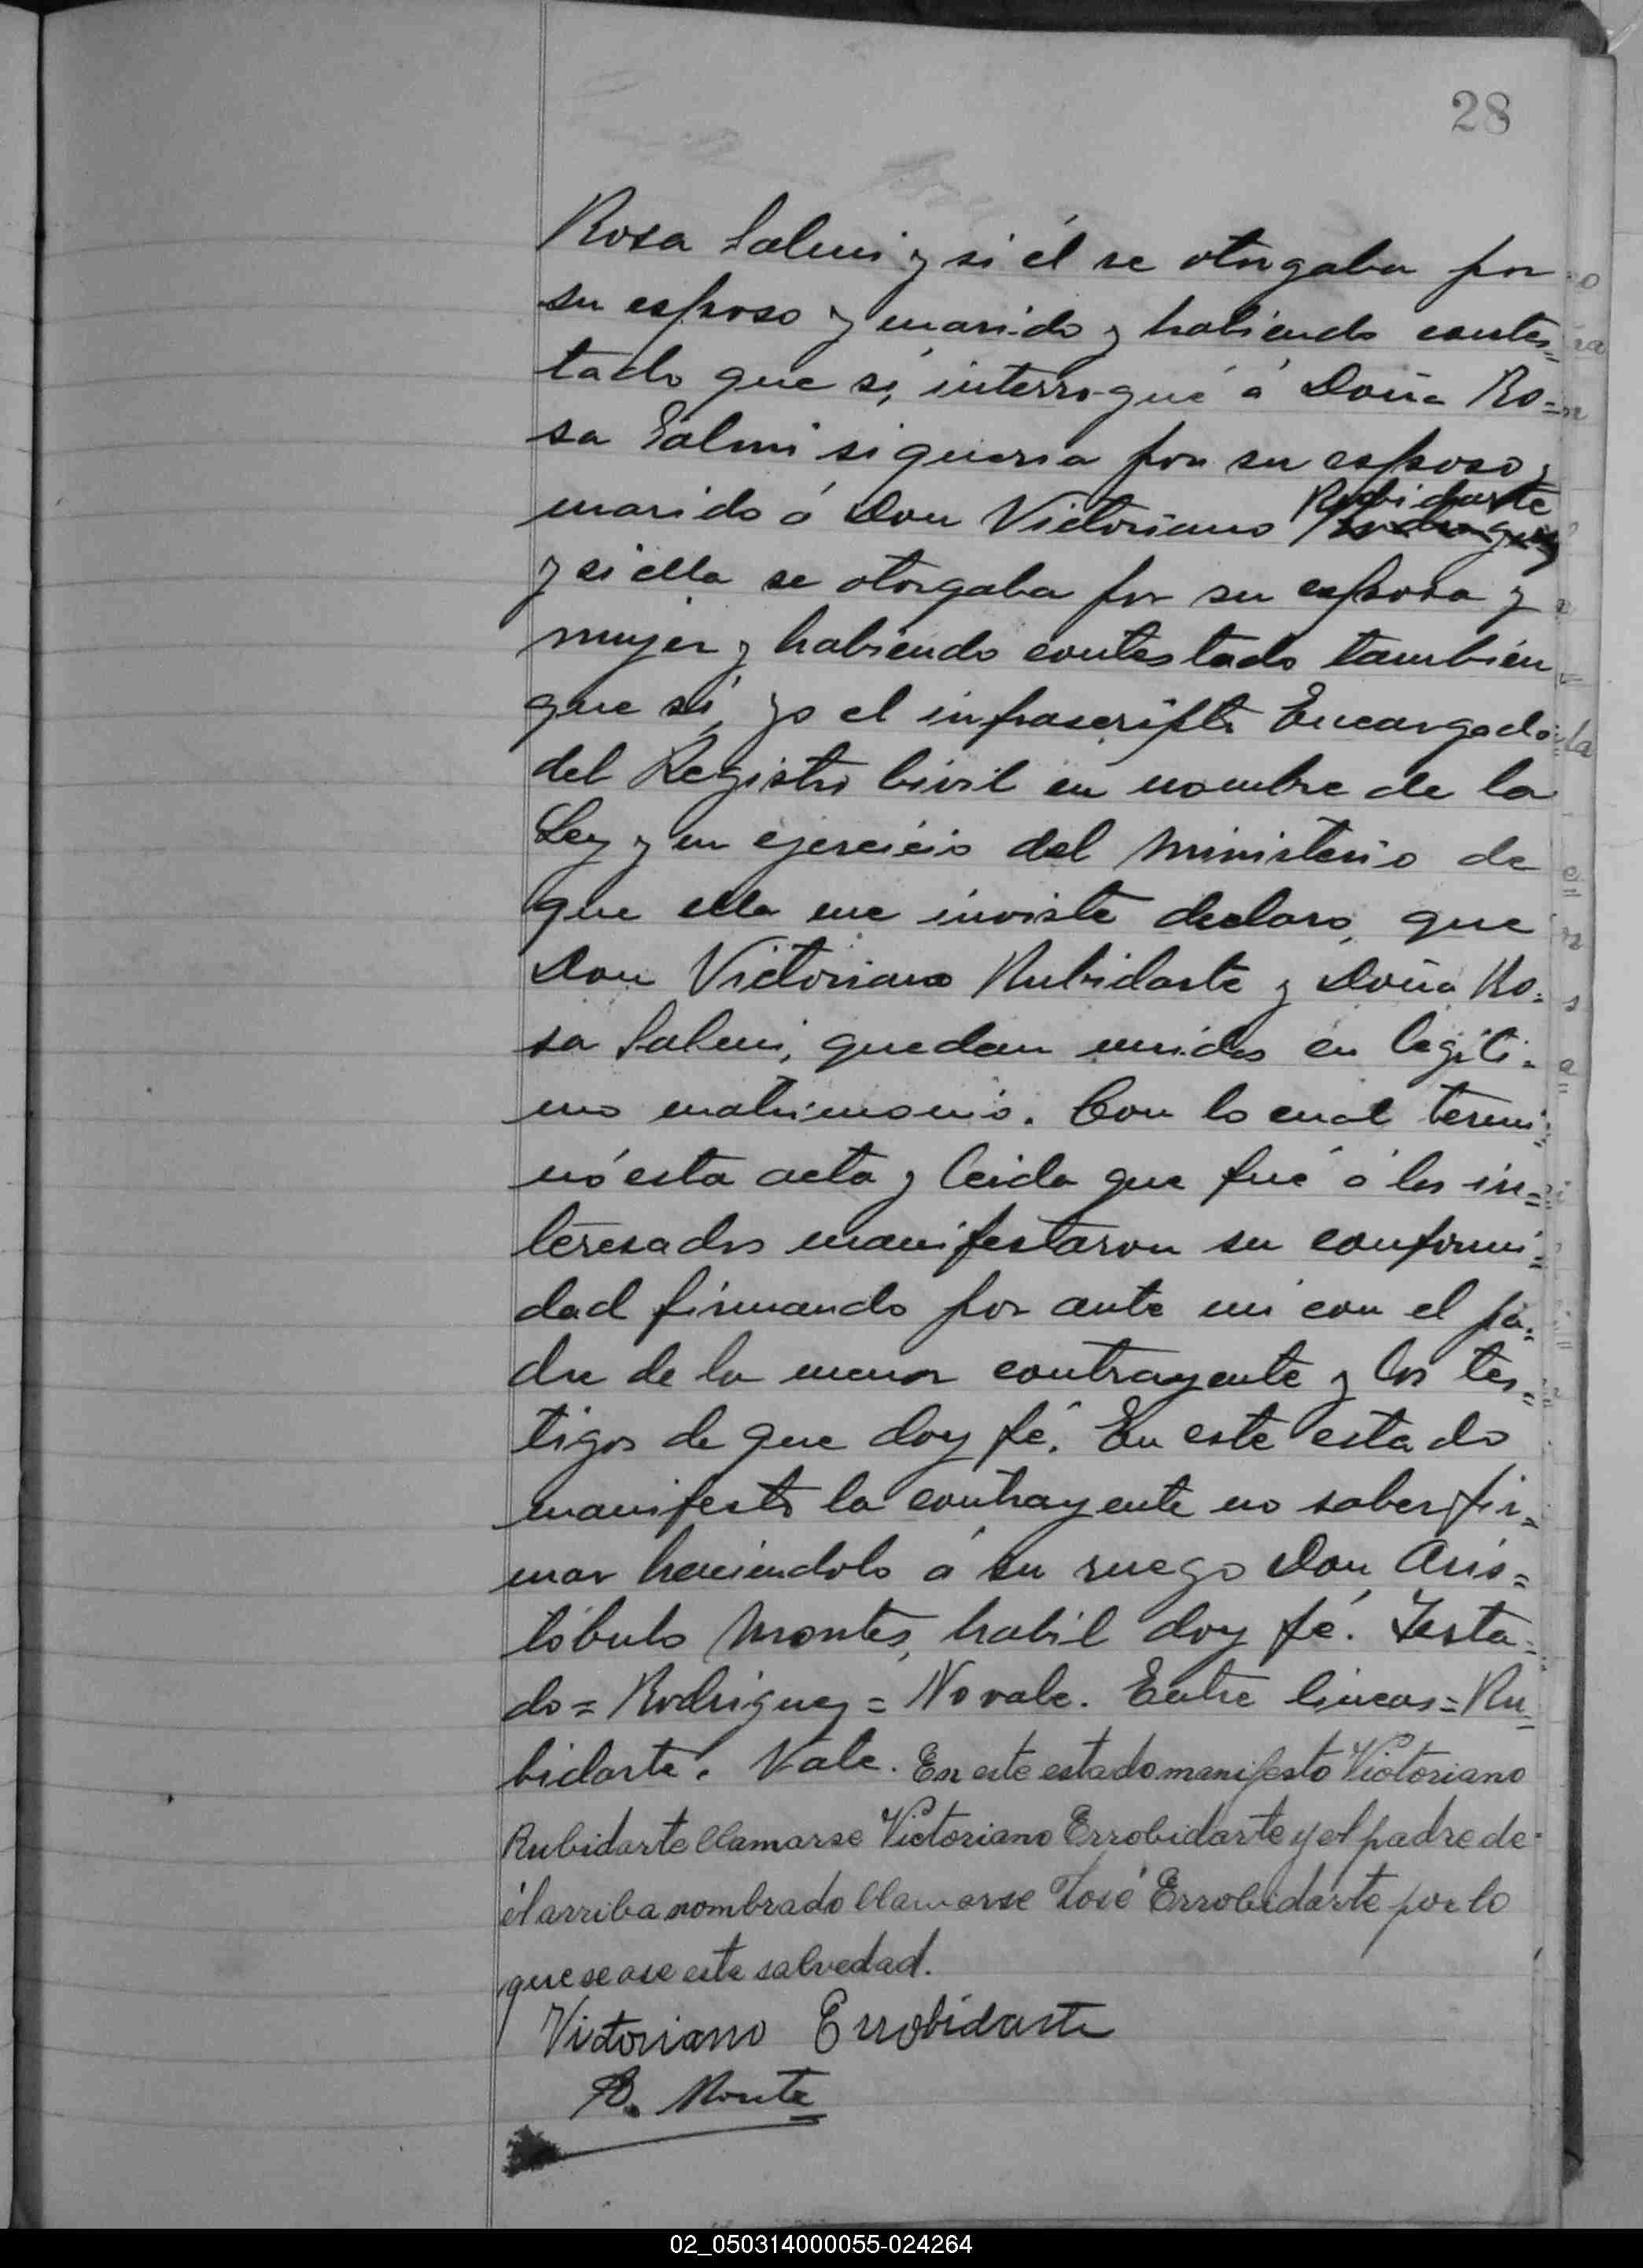 28
Rosa Salmi y si él se otorgaba por
su esposo y marido y habiendo contes=
tado que sí, interrogué á Doña Ro=
sa Salmi si queria por su esposo y
marido á Don Victoriano Rubidarte
y si ella se otorgaba por su esposa y
mujer y habiendo contestado también
que sí, yo el infrascripto Encargado
del Registro Civil en nombre de la
Ley y en ejercicio del Ministerio de
que ella me inviste declaro, que
Don Victoriano Rubidarte y Doña Ro=
sa Salmi, quedan unidos en legiti=
mo matrimonio. Con lo cual termi=
nó esta acta y leida que fué á los in=
teresados manifestaron su conformi=
dad firmando por ante mi con el pa=
dre de la menor contrayente y los tes=
tigos de que doy fé. En este estado
manifestó la contrayente no saber fir=
mar haciendolo á su ruego Don Aris=
tóbulo Montes, habil doy fé. Testa=
do = Rodriguez = No vale. Entre lineas = Ru=
bidarte. Vale. En este estado manifesto Victoriano
Rubidarte llamarse Victoriano Errobidarte y el padre de
él arriba nombrado llamarse José Errobidarte por lo
que se ase esta salvedad.
Victoriano Errobidarte
Monte
02_050314000055-024264